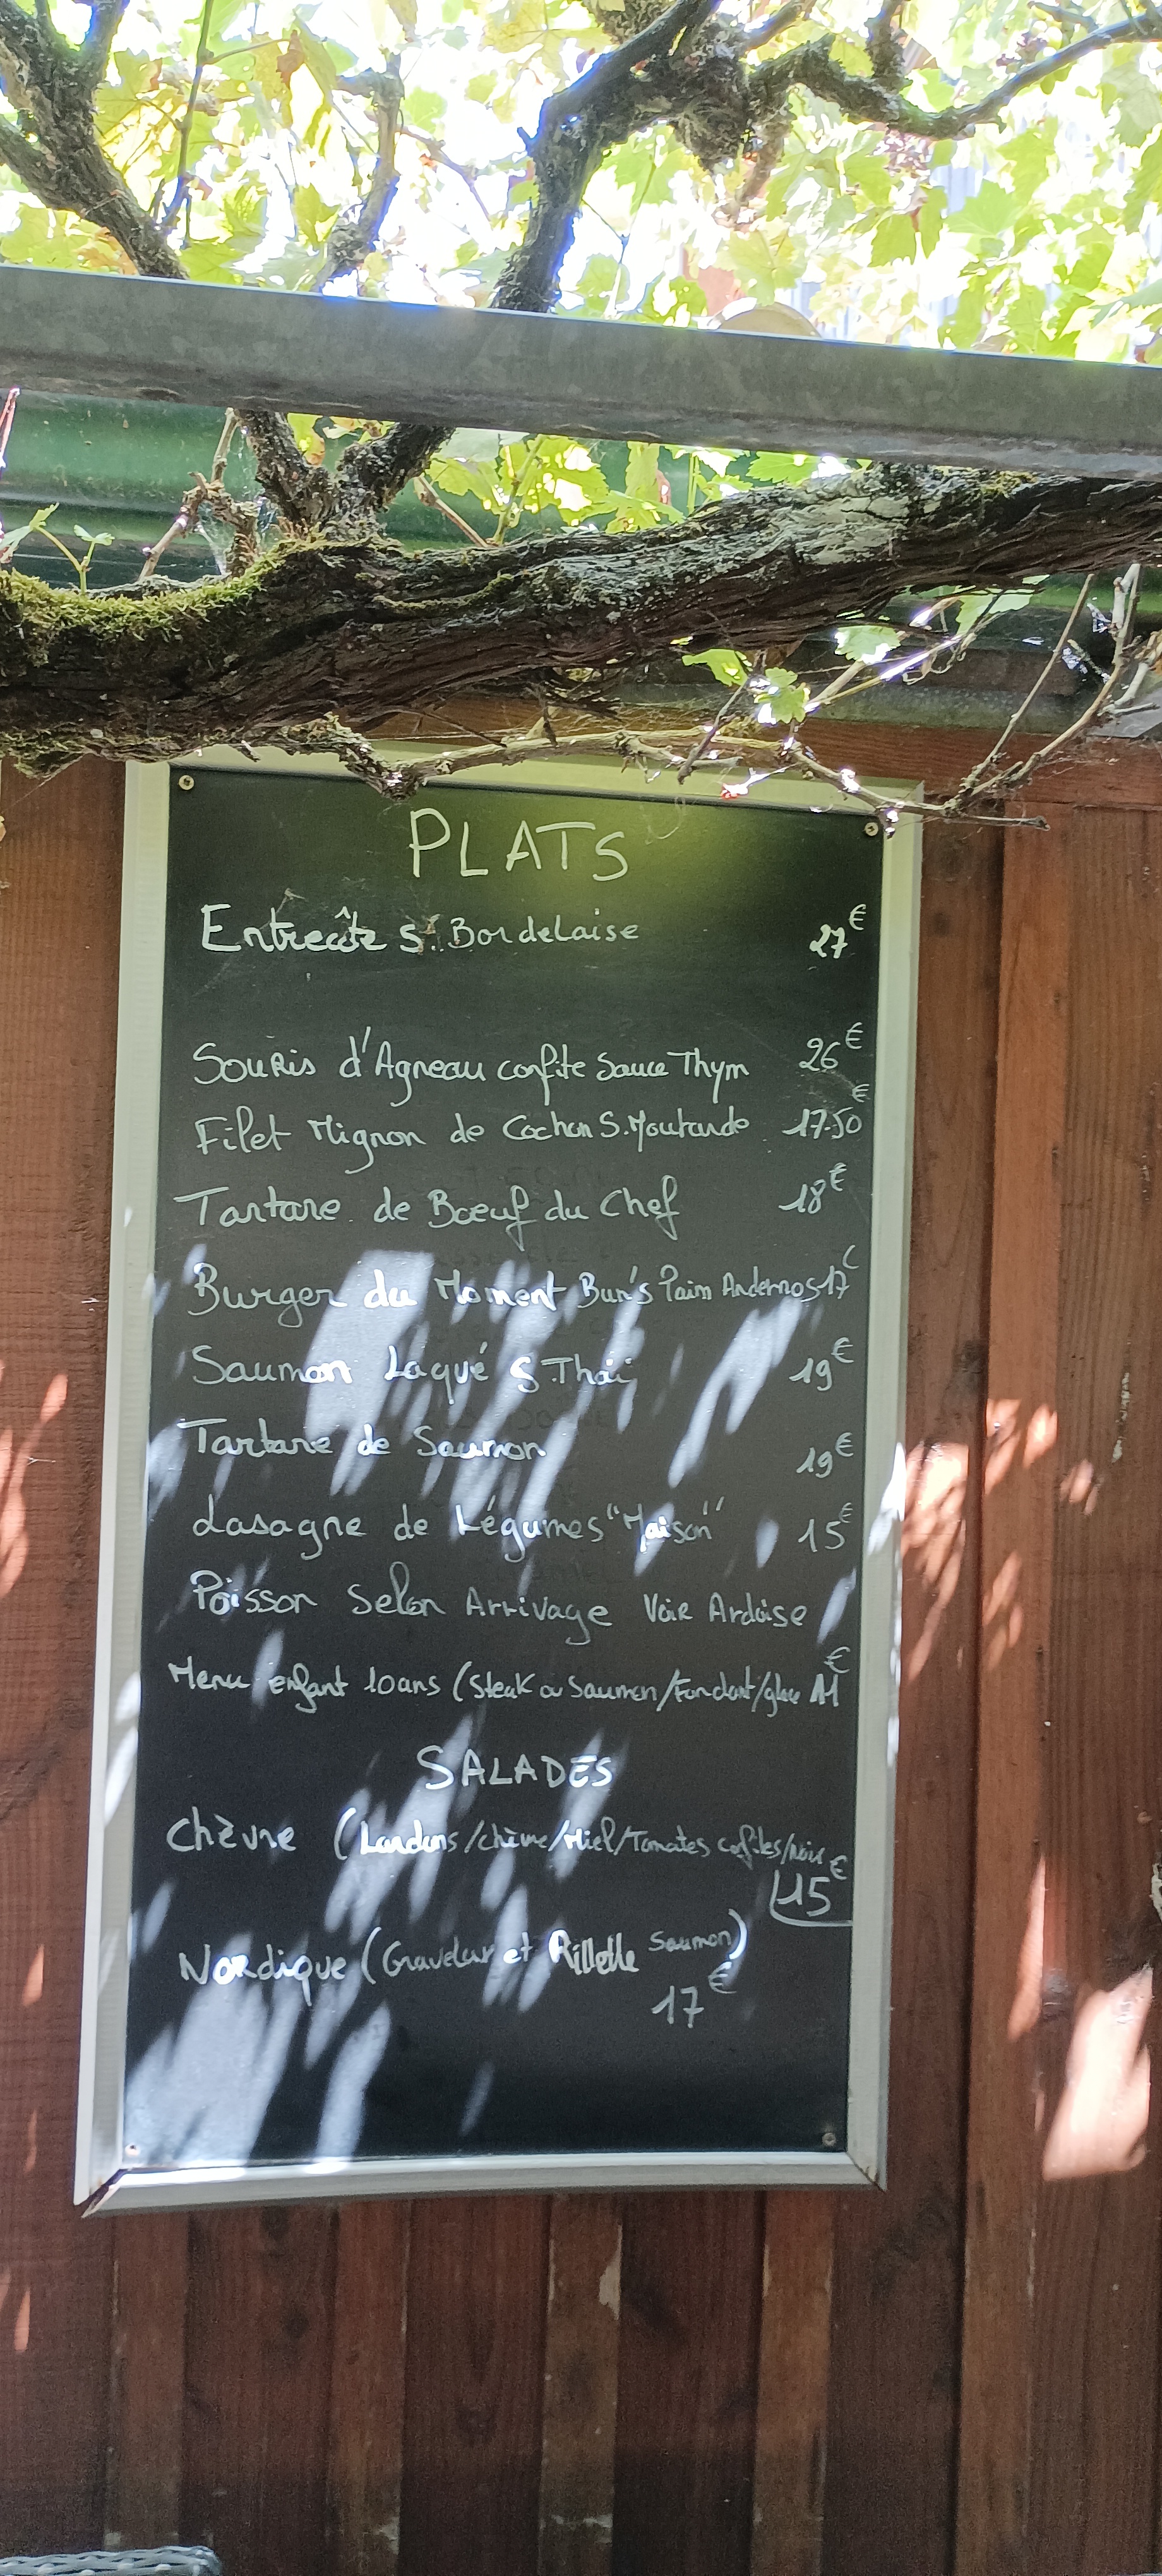 PLATS
Entrecôte S. Bordelaise 27€
Souris d'Agneau confite Sauce Thym 26€
Filet Mignon de Cochon S. Moutarde 17.50€
Tartare de Bœuf du Chef 18€
Burger du Moment Bun's Pain Andernos 17€
Saumon Laqué S. Thaï 19€
Tartare de Saumon 19€
Lasagne de Légumes "Maison" 15€
Poisson Selon Arrivage Voir Ardoise
Menu enfant 10ans (Steak ou Saumon/Fondant/glace 11€
SALADES
Chèvre (Lardons/chèvre/Miel/Tomates confites/noix
15€
Nordique (Gravelax et Rillette Saumon)
17€